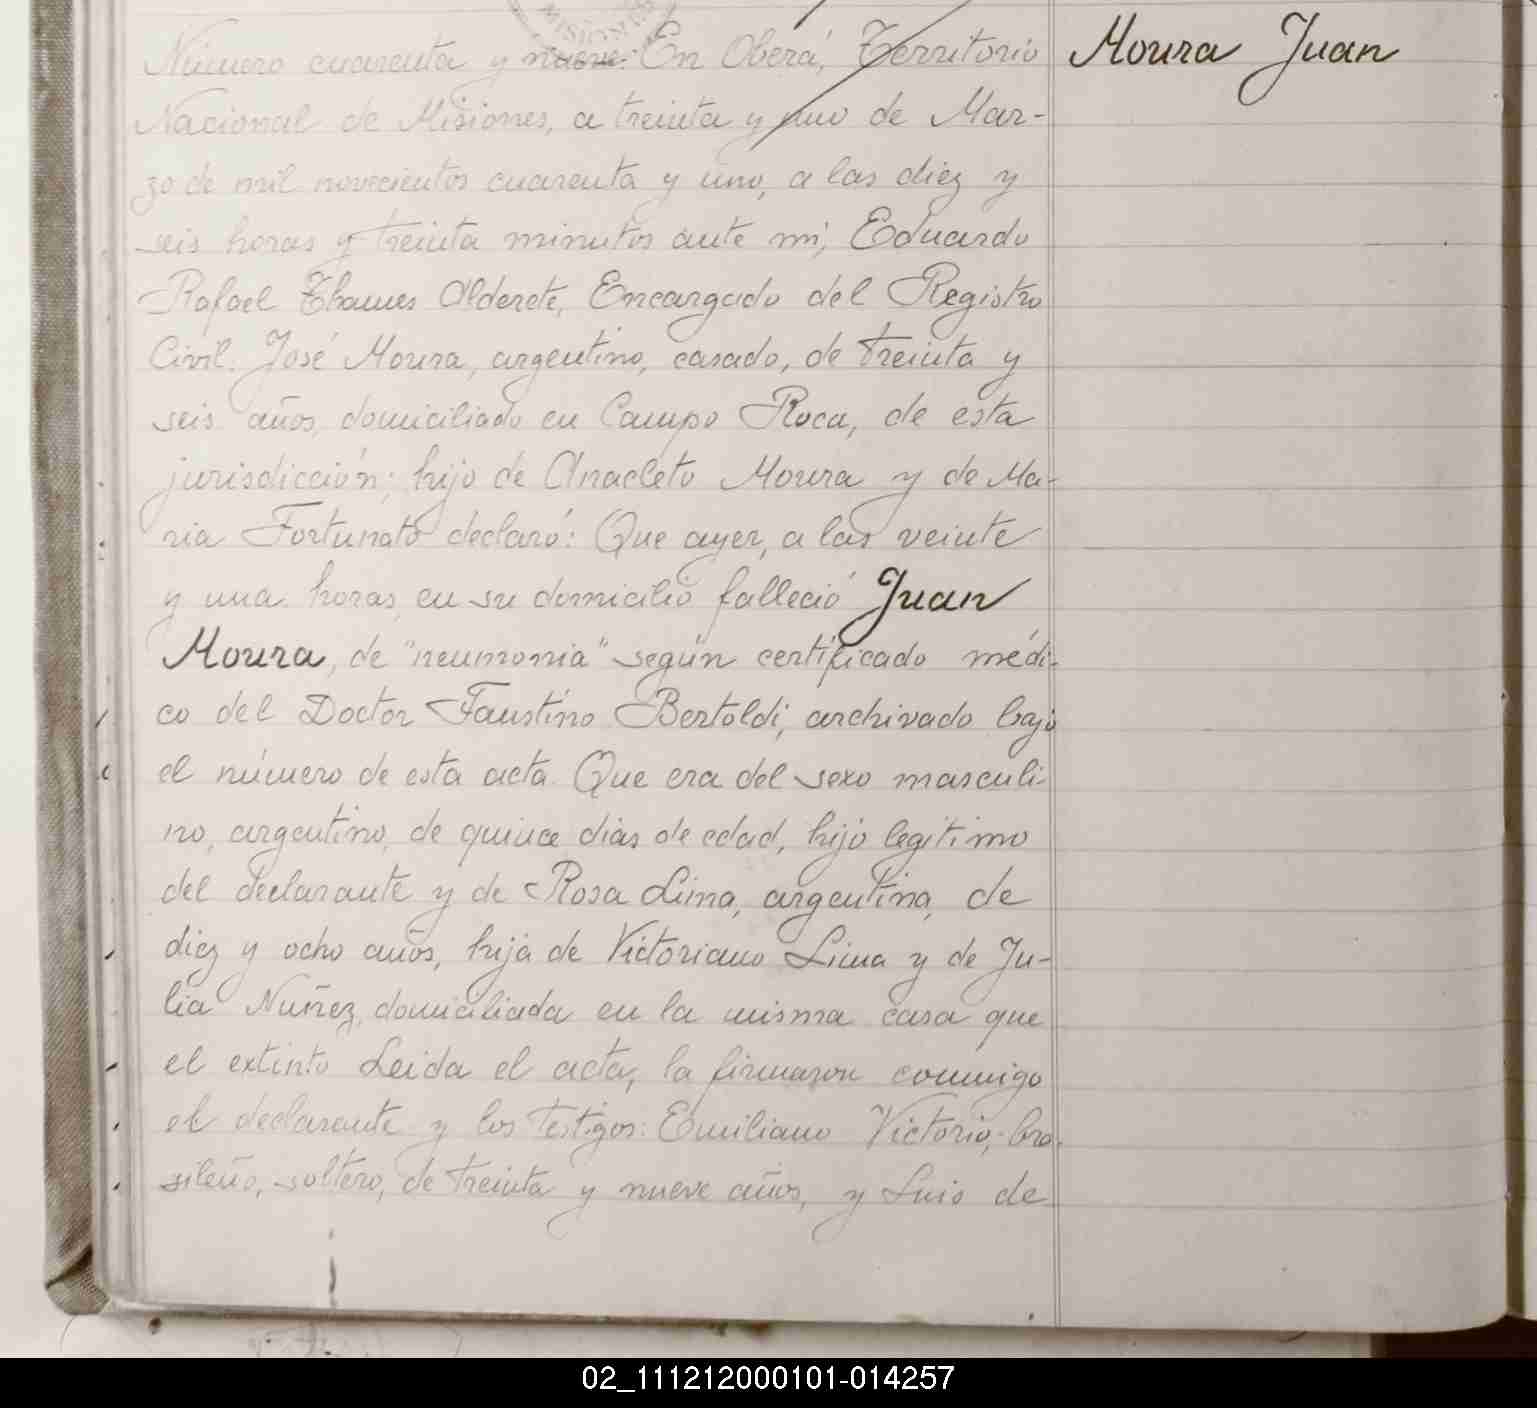 MISIONES
Número cuarenta y nueve: En Oberá, Territorio
Moura Juan
Nacional de Misiones, a treinta y uno de Mar-
zo de mil novecientos cuarenta y uno, a las diez y
seis horas y treinta minutos ante mí, Eduardo
Rafael Thames Alderete, Encargado del Registro
Civil. José Moura, argentino, casado, de treinta y
seis años, domiciliado en Campo Roca, de esta
jurisdicción; hijo de Anacleto Moura y de Ma-
ria Fortunato declaró: Que ayer, a las veinte
y una horas, en su domicilio falleció Juan
Moura, de "neumonia" según certificado médi-
co del Doctor Faustino Bertoldi, archivado bajo
el número de esta acta. Que era del sexo masculi-
no, argentino, de quince dias de edad, hijo legitimo
del declarante y de Rosa Lima, argentina, de
diez y ocho años, hija de Victoriano Lima y de Ju-
lia Nuñez, domiciliada en la misma casa que
el extinto Leida el acta, la firmaron conmigo
el declarante y los testigos: Emiliano Victorio, bra-
sileño, soltero, de treinta y nueve años, y Luis de
02_111212000101-014257